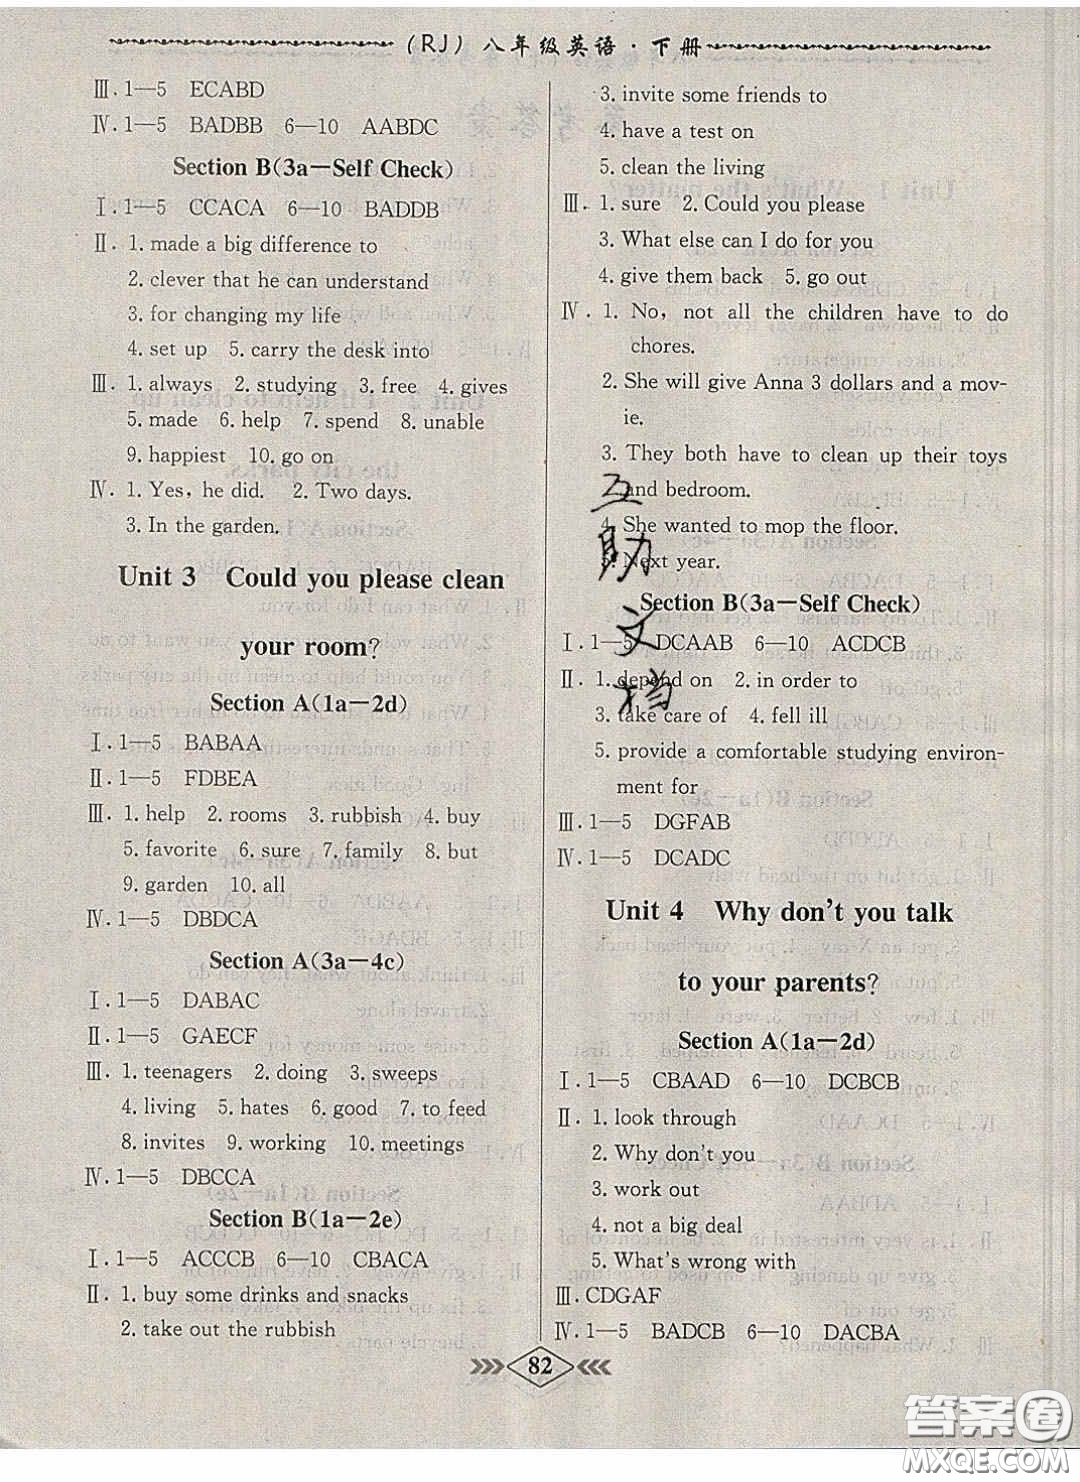 (RJ) 八年级英语·下册
Ⅲ.1—5 ECABD
Ⅳ.1—5 BADBB 6—10 AABDC
Section B(3a—Self Check)
Ⅰ.1—5 CCACA 6—10 BADDB
Ⅱ.1. made a big difference to
2. clever that he can understand
3. for changing my life
4. set up 5. carry the desk into
Ⅲ.1. always 2. studying 3. free 4. gives
5. made 6. help 7. spend 8. unable
9. happiest 10. go on
Ⅳ.1. Yes, he did. 2. Two days.
3. In the garden.
Unit 3 Could you please clean
your room?
Section A(1a—2d)
Ⅰ.1—5 BABAA
Ⅱ.1—5 FDBEA
Ⅲ.1. help 2. rooms 3. rubbish 4. buy
5. favorite 6. sure 7. family 8. but
9. garden 10. all
Ⅳ.1—5 DBDCA
Section A(3a—4c)
Ⅰ.1—5 DABAC
Ⅱ.1—5 GAECF
Ⅲ.1. teenagers 2. doing 3. sweeps
4. living 5. hates 6. good 7. to feed
8. invites 9. working 10. meetings
Ⅳ.1—5 DBCCA
Section B(1a—2e)
Ⅰ.1—5 ACCCB 6—10 CBACA
Ⅱ.1. buy some drinks and snacks
2. take out the rubbish
3. invite some friends to
4. have a test on
5. clean the living
Ⅲ.1. sure 2. Could you please
3. What else can I do for you
4. give them back 5. go out
Ⅳ.1. No, not all the children have to do
chores.
2. She will give Anna 3 dollars and a mov-
ie.
3. They both have to clean up their toys
and bedroom.
4. She wanted to mop the floor.
5. Next year.
Section B(3a—Self Check)
Ⅰ.1—5 DCAAB 6—10 ACDCB
Ⅱ.1. depend on 2. in order to
3. take care of 4. fell ill
5. provide a comfortable studying environ-
ment for
Ⅲ.1—5 DGFAB
Ⅳ.1—5 DCADC
Unit 4 Why don't you talk
to your parents?
Section A(1a—2d)
Ⅰ.1—5 CBAAD 6—10 DCBCB
Ⅱ.1. look through
2. Why don't you
3. work out
4. not a big deal
5. What's wrong with
Ⅲ.CDGAF
Ⅳ.1—5 BADCB 6—10 DACBA
互助文档
82
答案圈
MXQE.COM